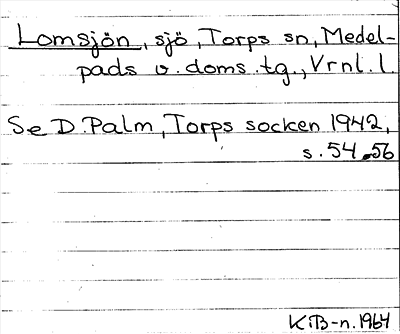 Lomsjön, sjö, Torps sn, Medel-
pads v. doms. tg., Vrnl. l.
Se D. Palm, Torps socken 1942,
s. 54, 56
KiB-n. 1964